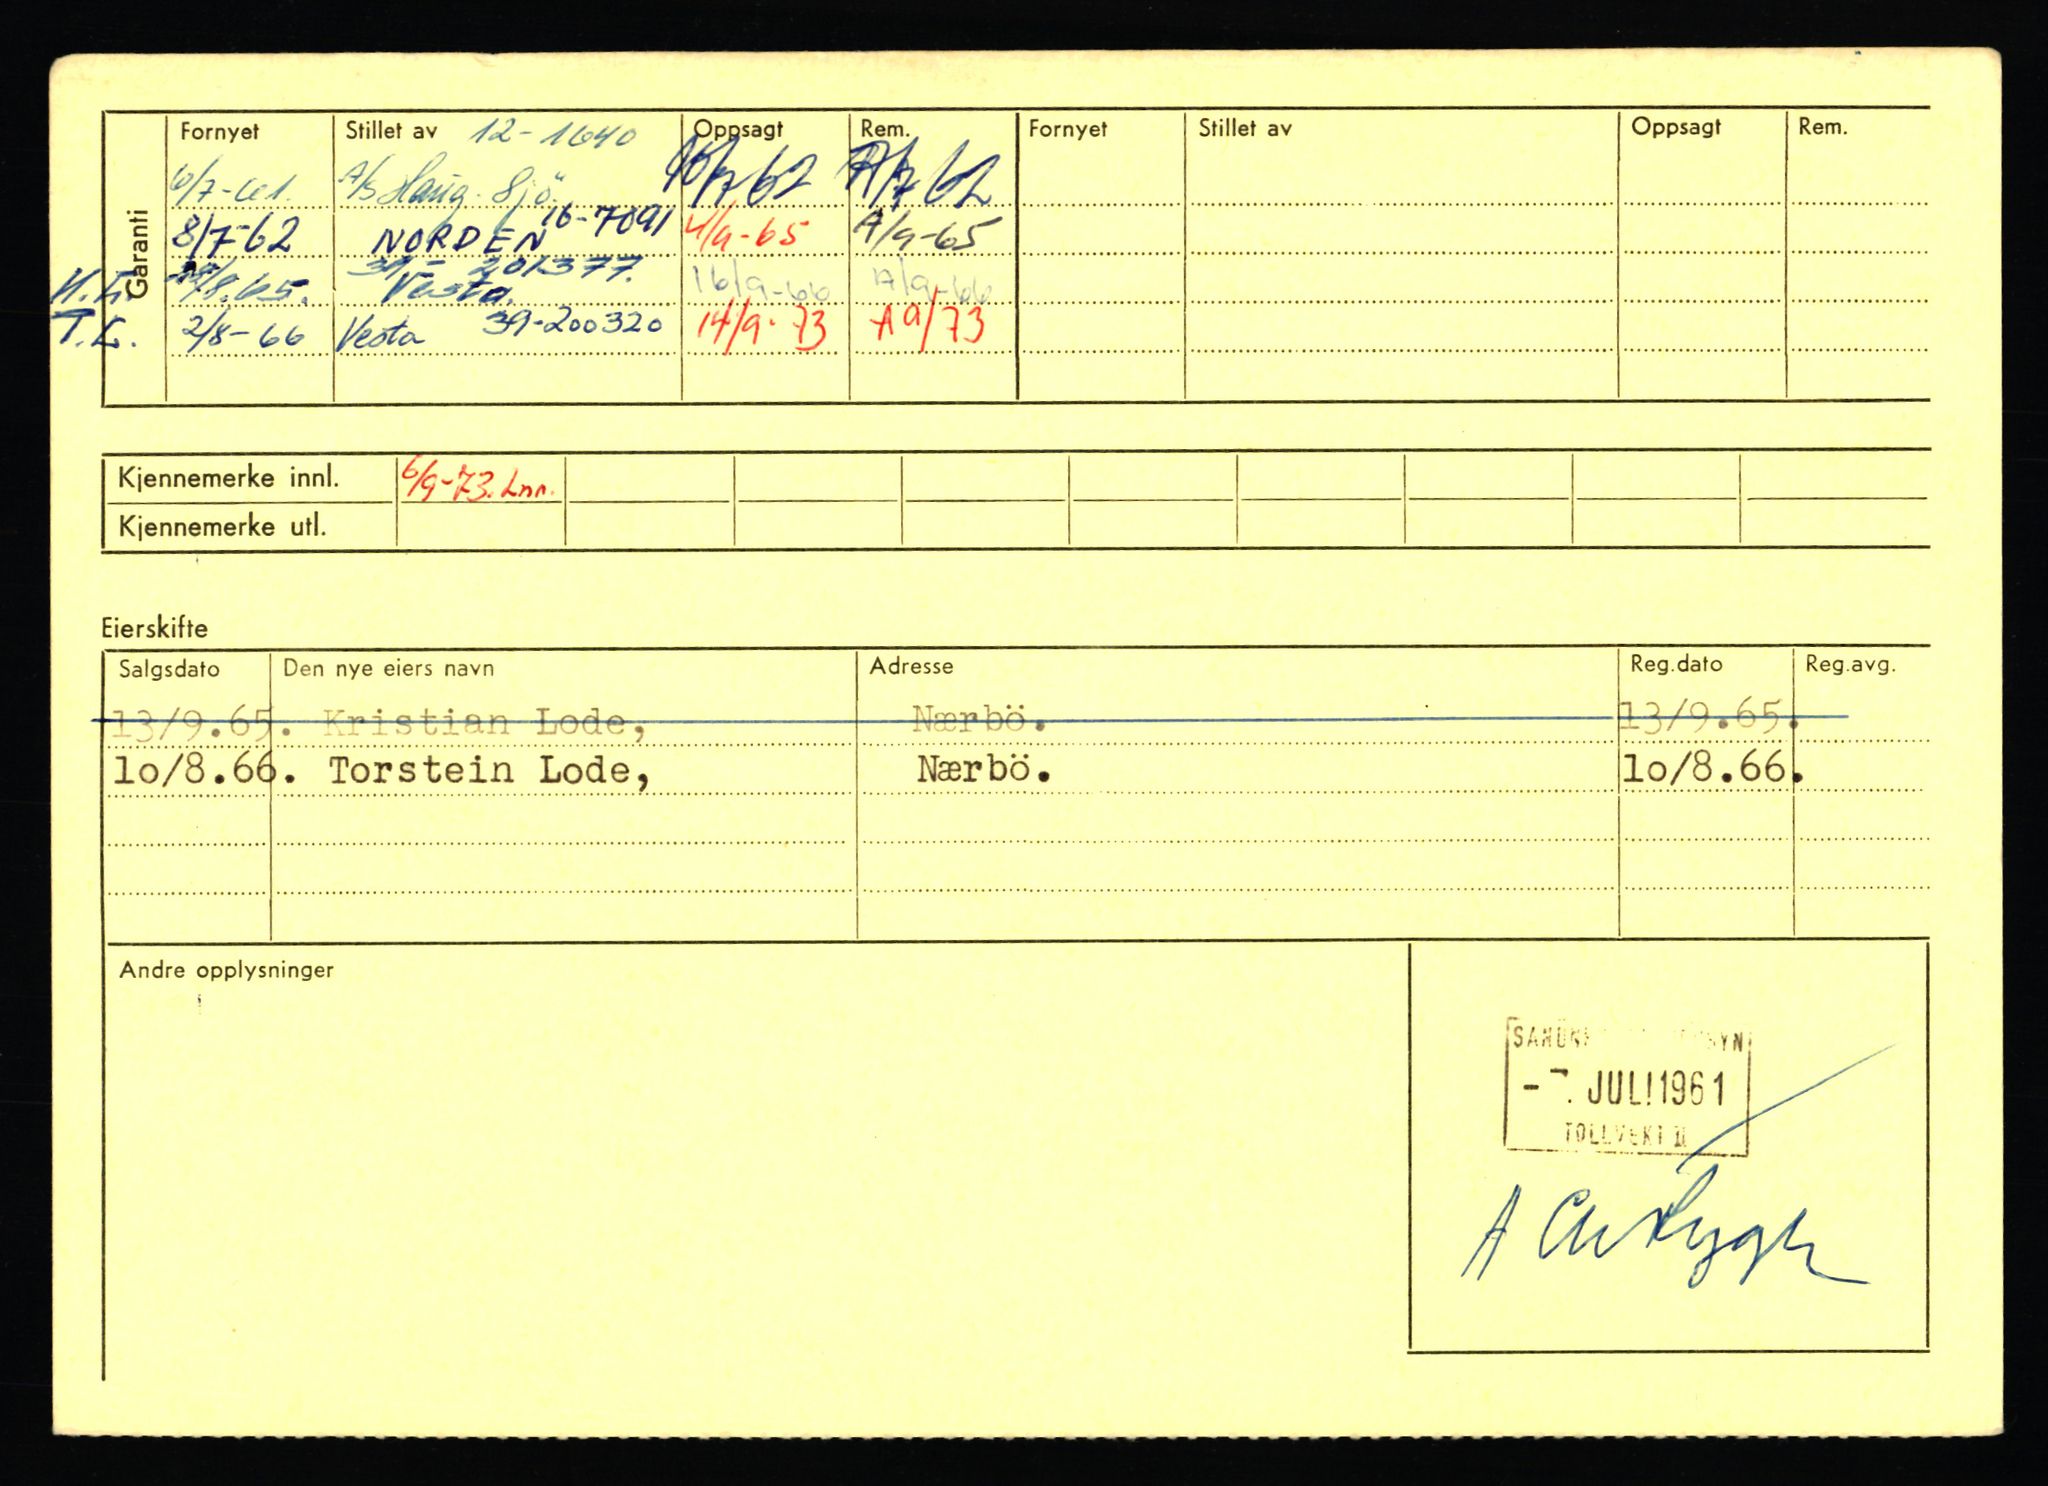 Garanti
Fornyet Stillet av 12-1640 Oppsagt Rem. Fornyet Stillet av Oppsagt Rem.
6/7-61. A/S Haug. Sjö. /7-62 A/7-62
8/7-62 NORDEN 16-7091 4/9-65 A/9-65
/8.65. 39-201377. Vesta. 16/9-66 A/9-66
T.L. 2/8-66 Vesta 39-200320 14/9-73 A9/73
Kjennemerke innl. 6/9-73. Lnn.
Kjennemerke utl.
Eierskifte
Salgsdato Den nye eiers navn Adresse Reg.dato Reg.avg.
13/9.65. Kristian Lode, Nærbö. 13/9.65.
lo/8.66. Torstein Lode, Nærbö. lo/8.66.
Andre opplysninger
-7. JULI 1961